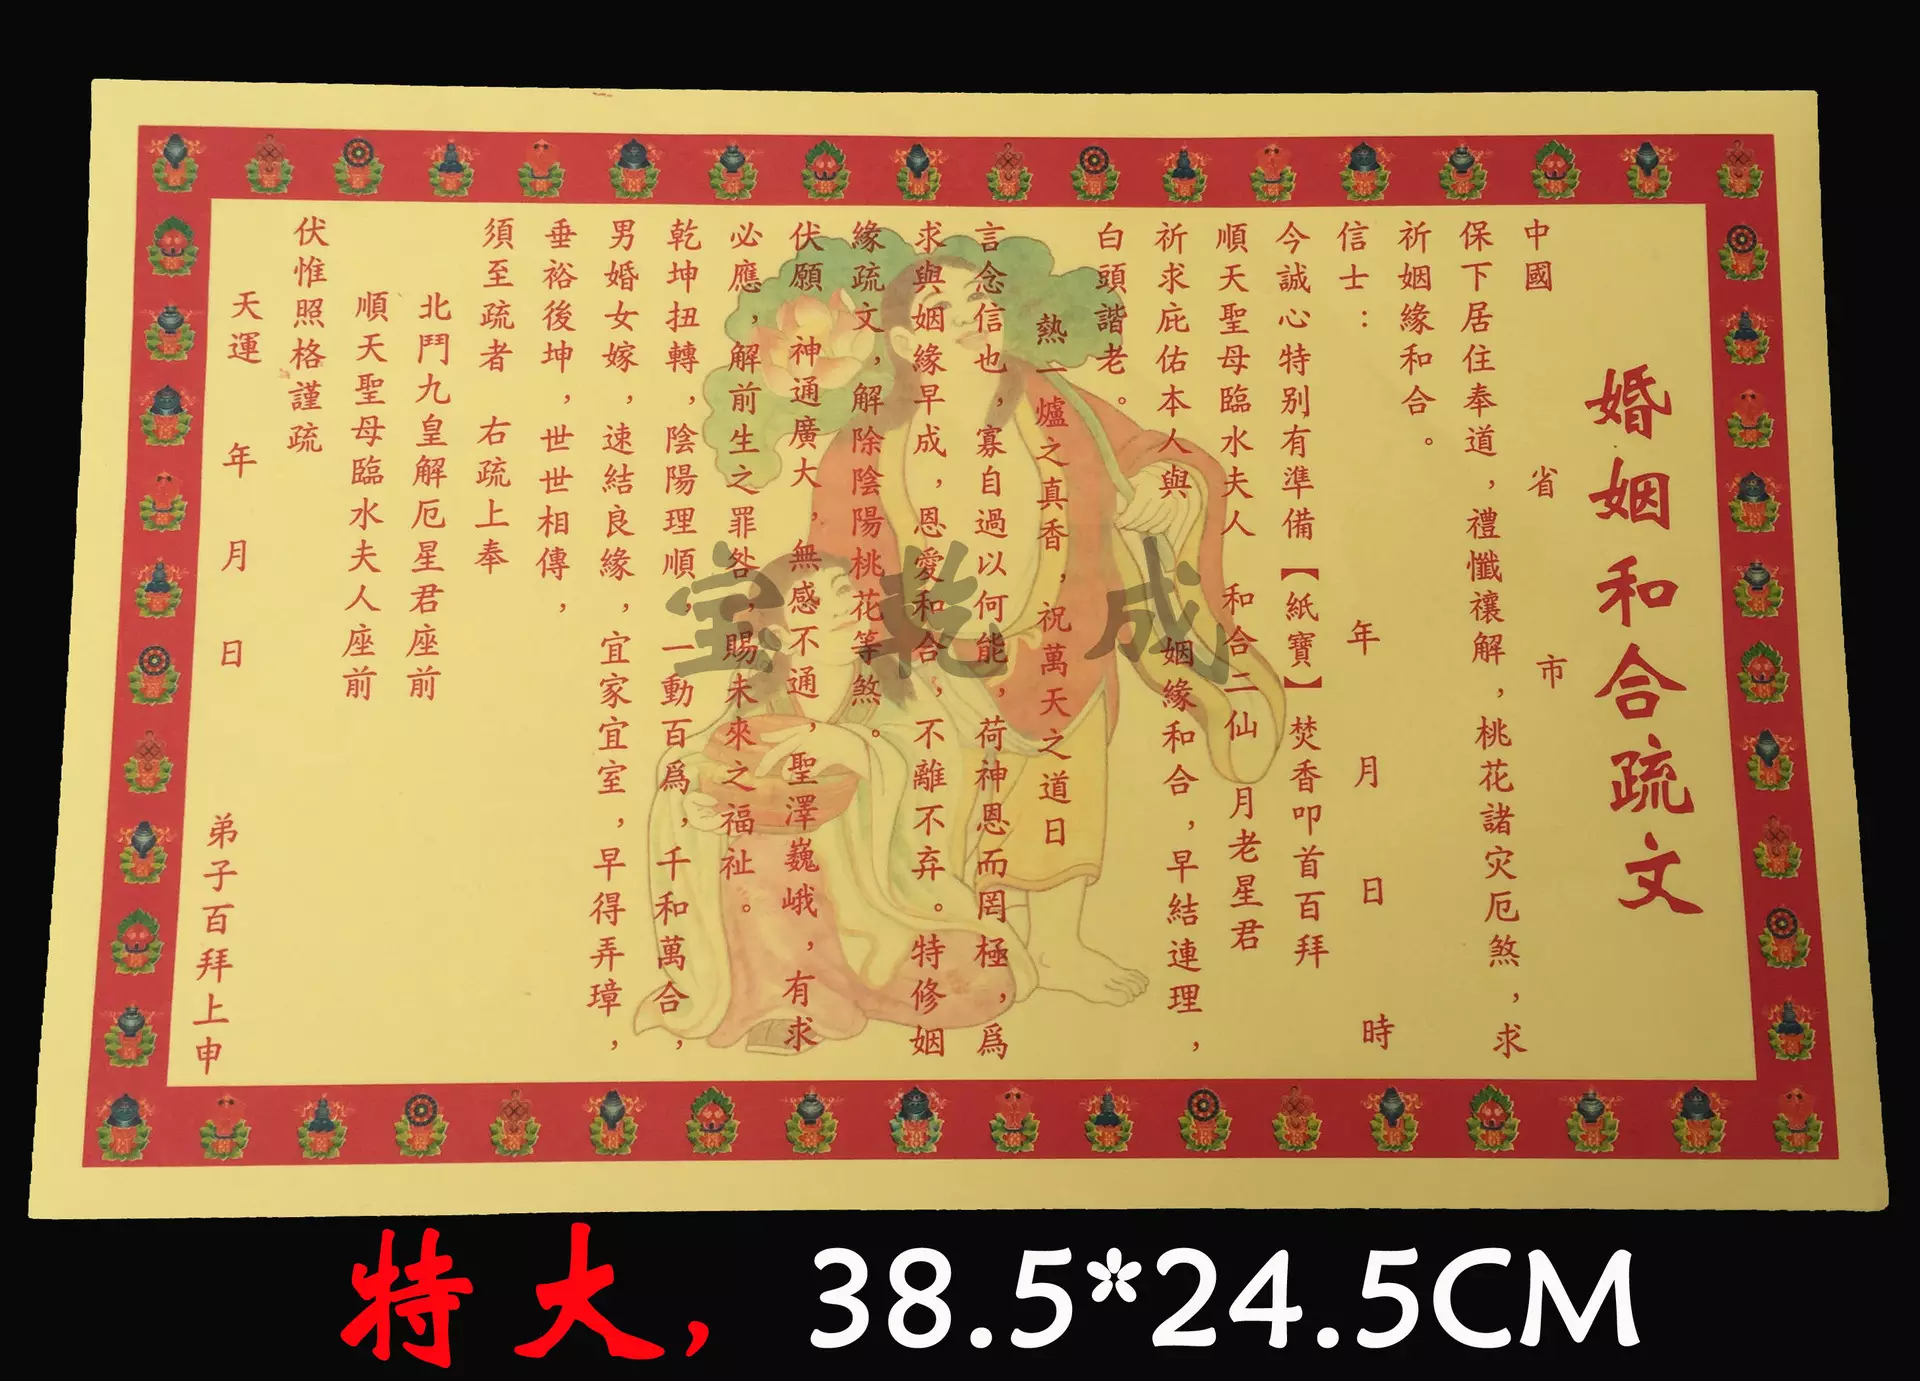 婚姻和合疏文
中國 省 市
保下居住奉道，禮懺禳解，桃花諸灾厄煞，求
祈姻緣和合。
信士： 年 月 日 時
今誠心特别有準備【紙寶】焚香叩首百拜
順天聖母臨水夫人 和合二仙 月老星君
祈求庇佑本人與 姻緣和合，早結連理，
白頭諧老。
熱一爐之真香，祝萬天之道日
言念信也，寡自過以何能，荷神恩而罔極，爲
求與姻緣早成，恩愛和合，不離不弃。特修姻
緣疏文，解除陰陽桃花等煞。
伏願 神通廣大，無感不通，聖澤巍峨，有求
必應，解前生之罪咎，賜未來之福祉。
乾坤扭轉，陰陽理順，一動百爲，千和萬合，
男婚女嫁，速結良緣，宜家宜室，早得弄璋，
垂裕後坤，世世相傳，
須至疏者 右疏上奉
北鬥九皇解厄星君座前
順天聖母臨水夫人座前
伏惟照格謹疏
天運 年 月 日 弟子百拜上申
宝乾成
特大，38.5*24.5CM